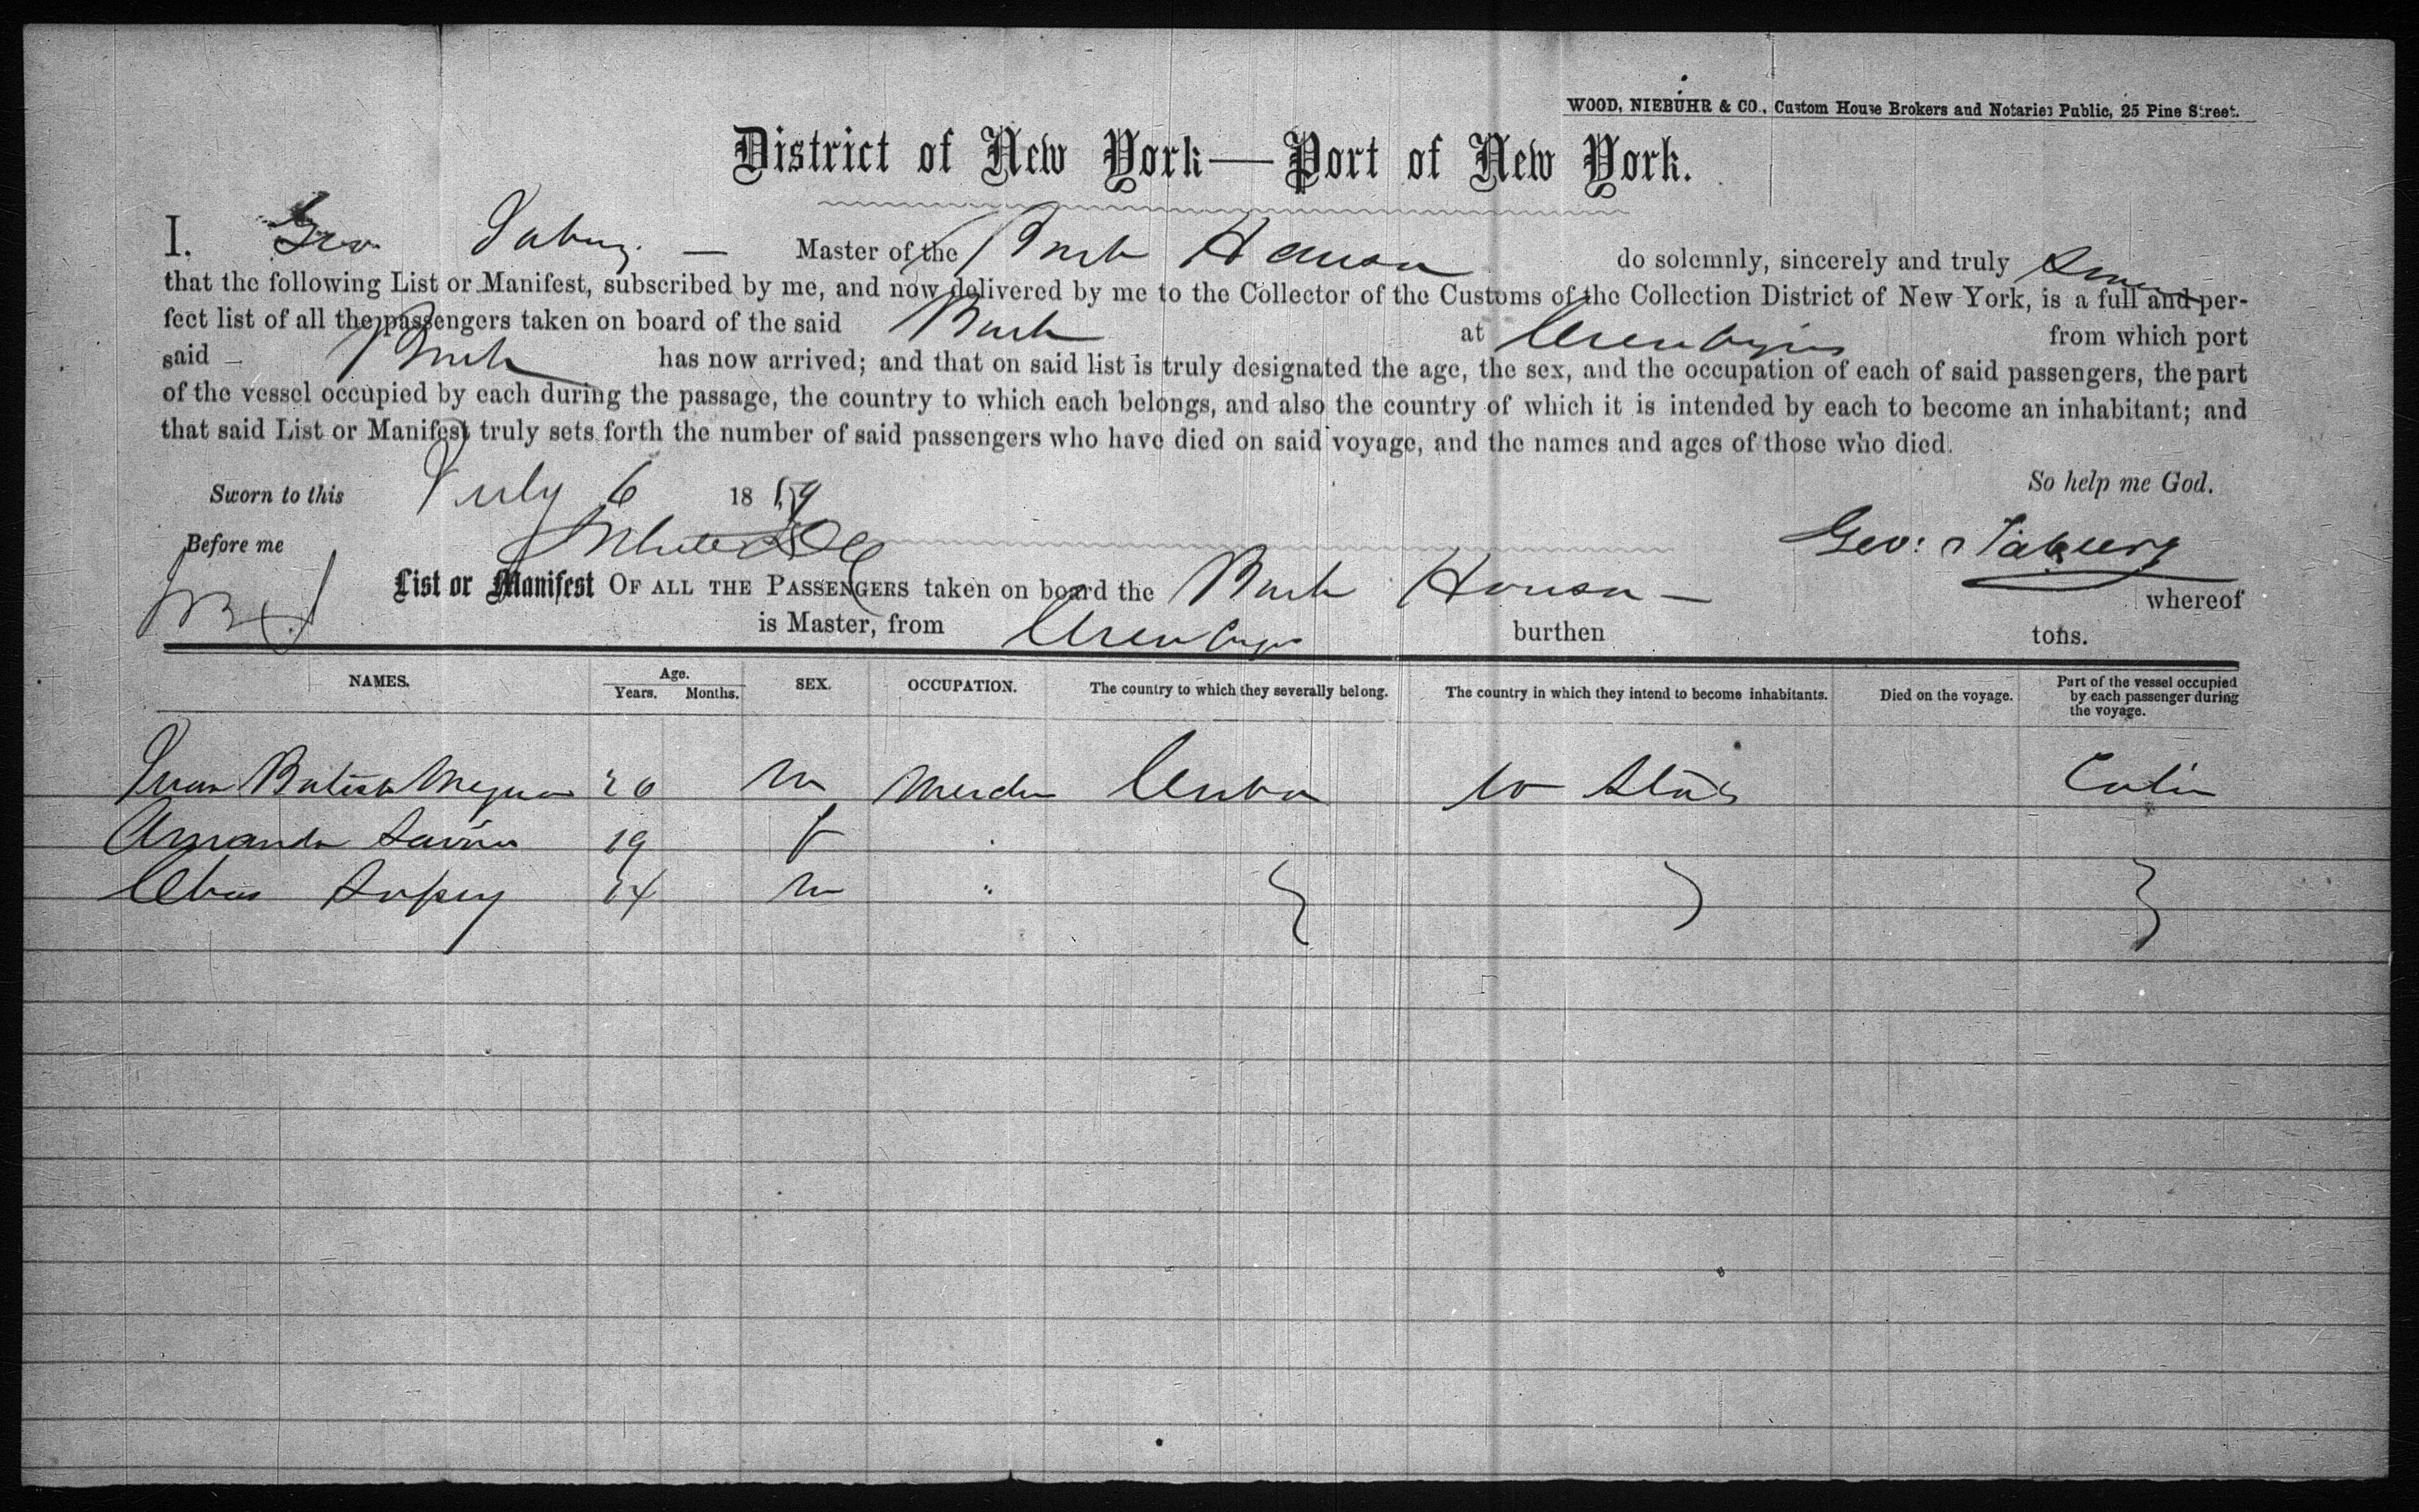 WOOD, NIEBUHR & CO., Custom House Brokers and Notaries Public, 25 Pine Street.
District of New York—Port of New York.
I. Geo Taburg — Master of the Bark Hanson do solemnly, sincerely and truly Swear
that the following List or Manifest, subscribed by me, and now delivered by me to the Collector of the Customs of the Collection District of New York, is a full and per-
fect list of all the passengers taken on board of the said Bark at from which port
said Bark has now arrived; and that on said list is truly designated the age, the sex, and the occupation of each of said passengers, the part
of the vessel occupied by each during the passage, the country to which each belongs, and also the country of which it is intended by each to become an inhabitant; and
that said List or Manifest truly sets forth the number of said passengers who have died on said voyage, and the names and ages of those who died.
Sworn to this July 6 1859 So help me God.
Before me Geo: Taburg
List or Manifest OF ALL THE PASSENGERS taken on board the Bark whereof
is Master, from burthen tons.
NAMES. Age. Years. Months. SEX. OCCUPATION. The country to which they severally belong. The country in which they intend to become inhabitants. Died on the voyage. Part of the vessel occupied by each passenger during the voyage.
Juan Batista 20 m Cuba Cabin
Amanda 19 f
Chas 14 m "